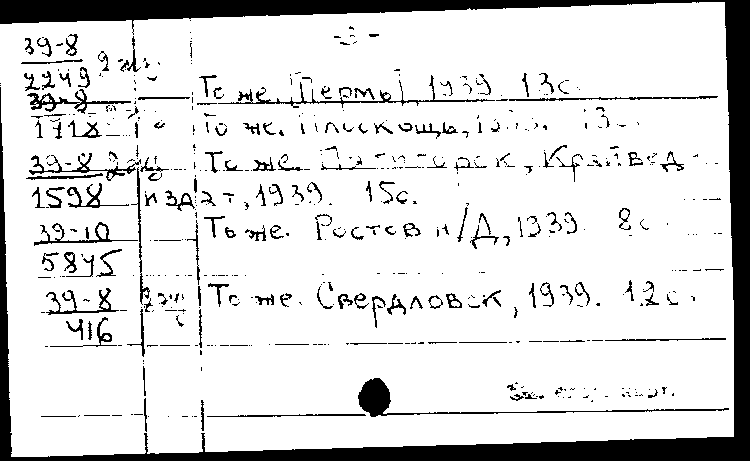 - 3 -
39-8
2249 2 экз. То же. [Пермь], 1939. 13с.
39-8
1718 То же. Плоскошь, 1939. 13с.
39-8 2экз То же. Пятигорск, Крайвед-
1598 издат, 1939. 15с.
39-10 То же. Ростов н/Д, 1939. 8с.
5845
39-8 2экз То же. Свердловск, 1939. 12с.
416
См. след. карт.